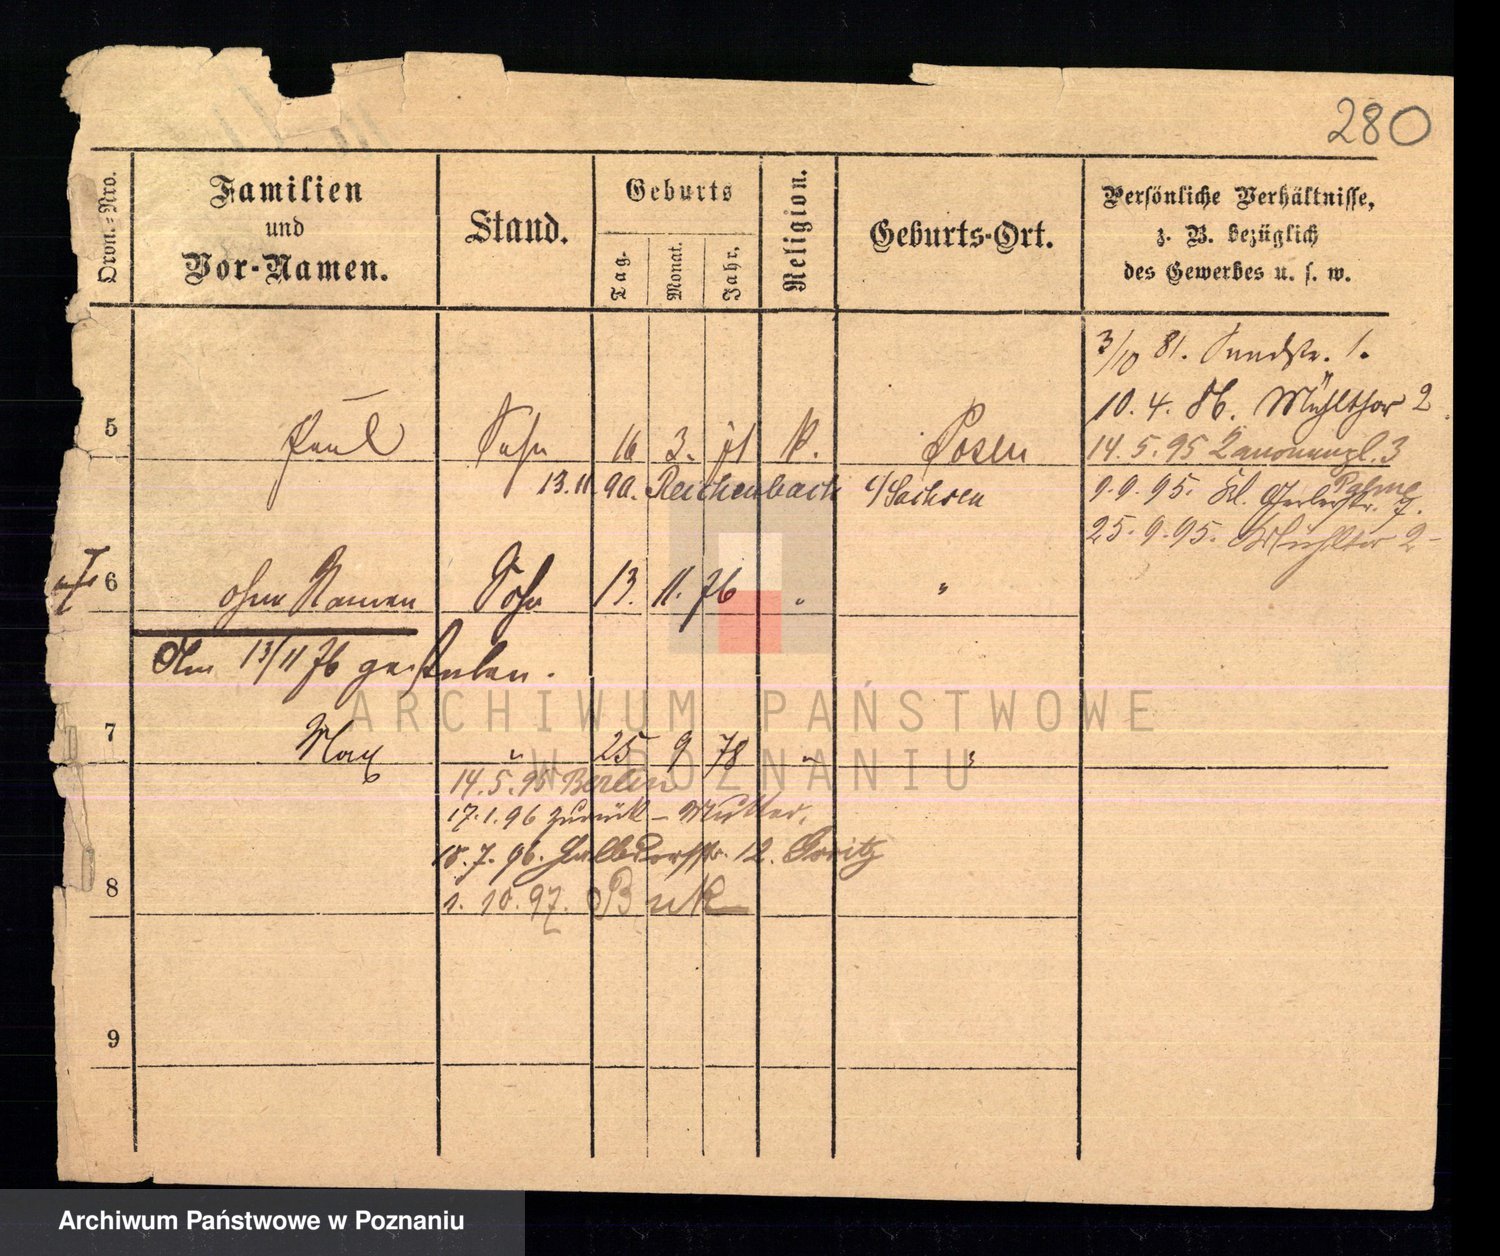 280
Ordn.=Nro.
Familien
und
Vor-Namen.
Stand.
Geburts
Tag.
Monat.
Jahr.
Religion.
Geburts-Ort.
Persönliche Verhältnisse,
z. B. bezüglich
des Gewerbes u. s. w.
3/10 81. 1.
10. 4. 86. Mühlthor 2.
5 Paul Sohn 16 3. 71 K. Posen
14. 5. 95 3
13. 11. 90. Reichenbach i/Sachsen
9. 9. 95. Kl. Gerberstr. 7.
25. 9. 95. Mühltor 2
6 ohne Namen Sohn 13. 11. 76 " "
Am 13/11 76 gestorben.
7 Max " 25 9 78 " "
14. 5. 95 Berlin
17. 1. 96 zurück – Mutter.
18. 7. 96. Halbdorfstr. 12.
8
1. 10. 97. Buk
9
ARCHIWUM PAŃSTWOWE
W POZNANIU
Archiwum Państwowe w Poznaniu